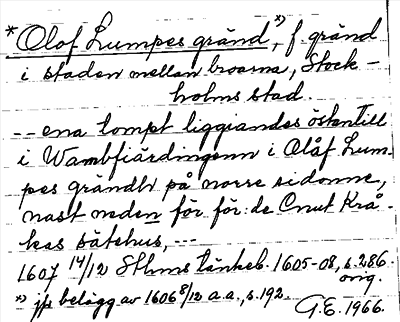 * Olof Lumpes gränd,*) f. gränd
i staden mellan broarna, Stock-
holms stad.
-- ena tompt liggiandes östentill
i Wambfiärdingenn i Olåf Lum-
pes grändh på norre sidonne,
nast neden för för:de Cnut Krå-
kas sätehus, ---
1607 14/12 Sthms tänkeb. 1605-08, s. 286.
orig.
*) jfr belägg av 1606 8/12 a.a., s. 192.
G.E. 1966.